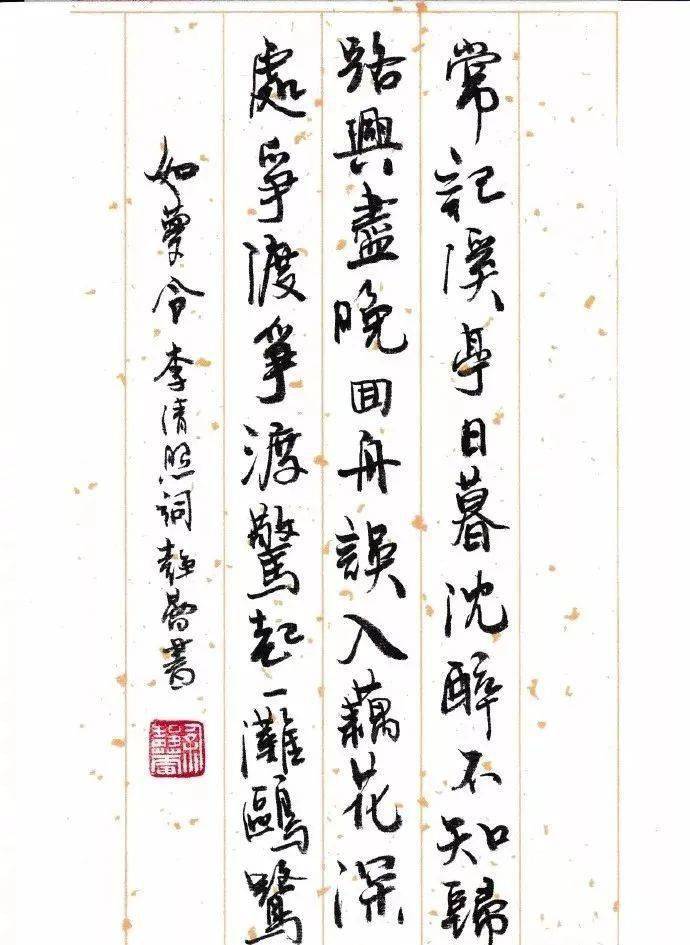 常記溪亭日暮沈醉不知歸
路興盡晚回舟誤入藕花深
處爭渡爭渡驚起一灘鷗鷺
如夢令 李清照詞 書